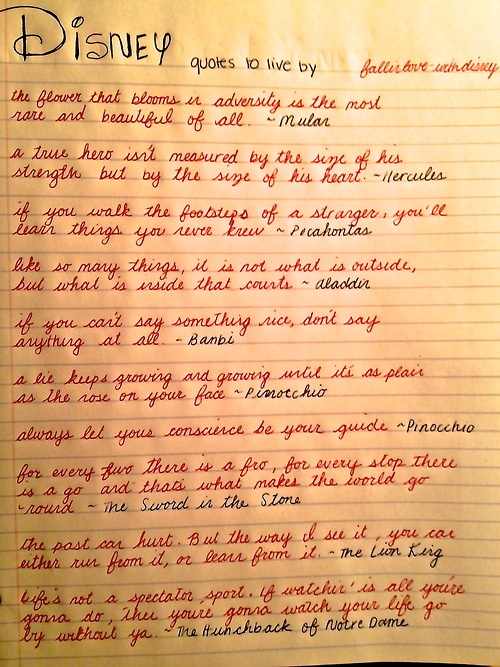 Disney
quotes to live by
fallinlove-withdisney
the flower that blooms in adversity is the most
rare and beautiful of all. ~ Mulan
a true hero isn't measured by the size of his
strength but by the size of his heart. ~Hercules
if you walk the footsteps of a stranger, you'll
learn things you never knew ~ Pocahontas
like so many things, it is not what is outside,
but what is inside that counts ~ Aladdin
if you can't say something nice, don't say
anything at all. - Bambi
a lie keeps growing and growing until it's as plain
as the nose on your face ~Pinnocchio
always let your conscience be your guide ~Pinocchio
for every two there is a fro, for every stop there
is a go and thats what makes the world go
-round ~ The Sword in the Stone
the past can hurt. But the way I see it, you can
either run from it, or learn from it. ~ The Lion King
Life's not a spectator sport. If watchin' is all you're
gonna do, then you're gonna watch your life go
by without ya. ~ The Hunchback of Notre Dame